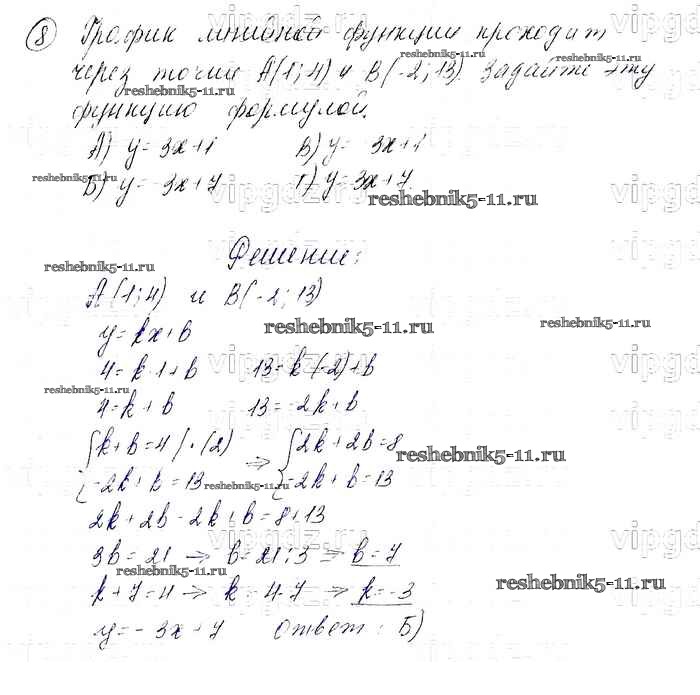 8 График линейной функции проходит
через точки A(1; 4) и B(-2; 13). Задайте эту
функцию формулой.
А) y = 3x+1 В) y = 3x+1
Б) y = -3x+7 Г) y = 3x+7
Решение:
A(1; 4) и B(-2; 13)
y = kx+b
4 = k·1+b 13 = k·(-2)+b
4 = k+b 13 = -2k+b
{ k+b=4 |·(2) => { 2k+2b=8
{ -2k+b=13 { -2k+b=13
2k+2b-2k+b=8+13
3b=21 → b=21:3 → b=7
k+7=4 → k=4-7 → k=-3
y=-3x+7 Ответ: Б)
reshebnik5-11.ru
reshebnik5-11.ru
reshebnik5-11.ru
reshebnik5-11.ru
reshebnik5-11.ru
reshebnik5-11.ru
reshebnik5-11.ru
reshebnik5-11.ru
reshebnik5-11.ru
reshebnik5-11.ru
reshebnik5-11.ru
reshebnik5-11.ru
reshebnik5-11.ru
vipgdz.ru